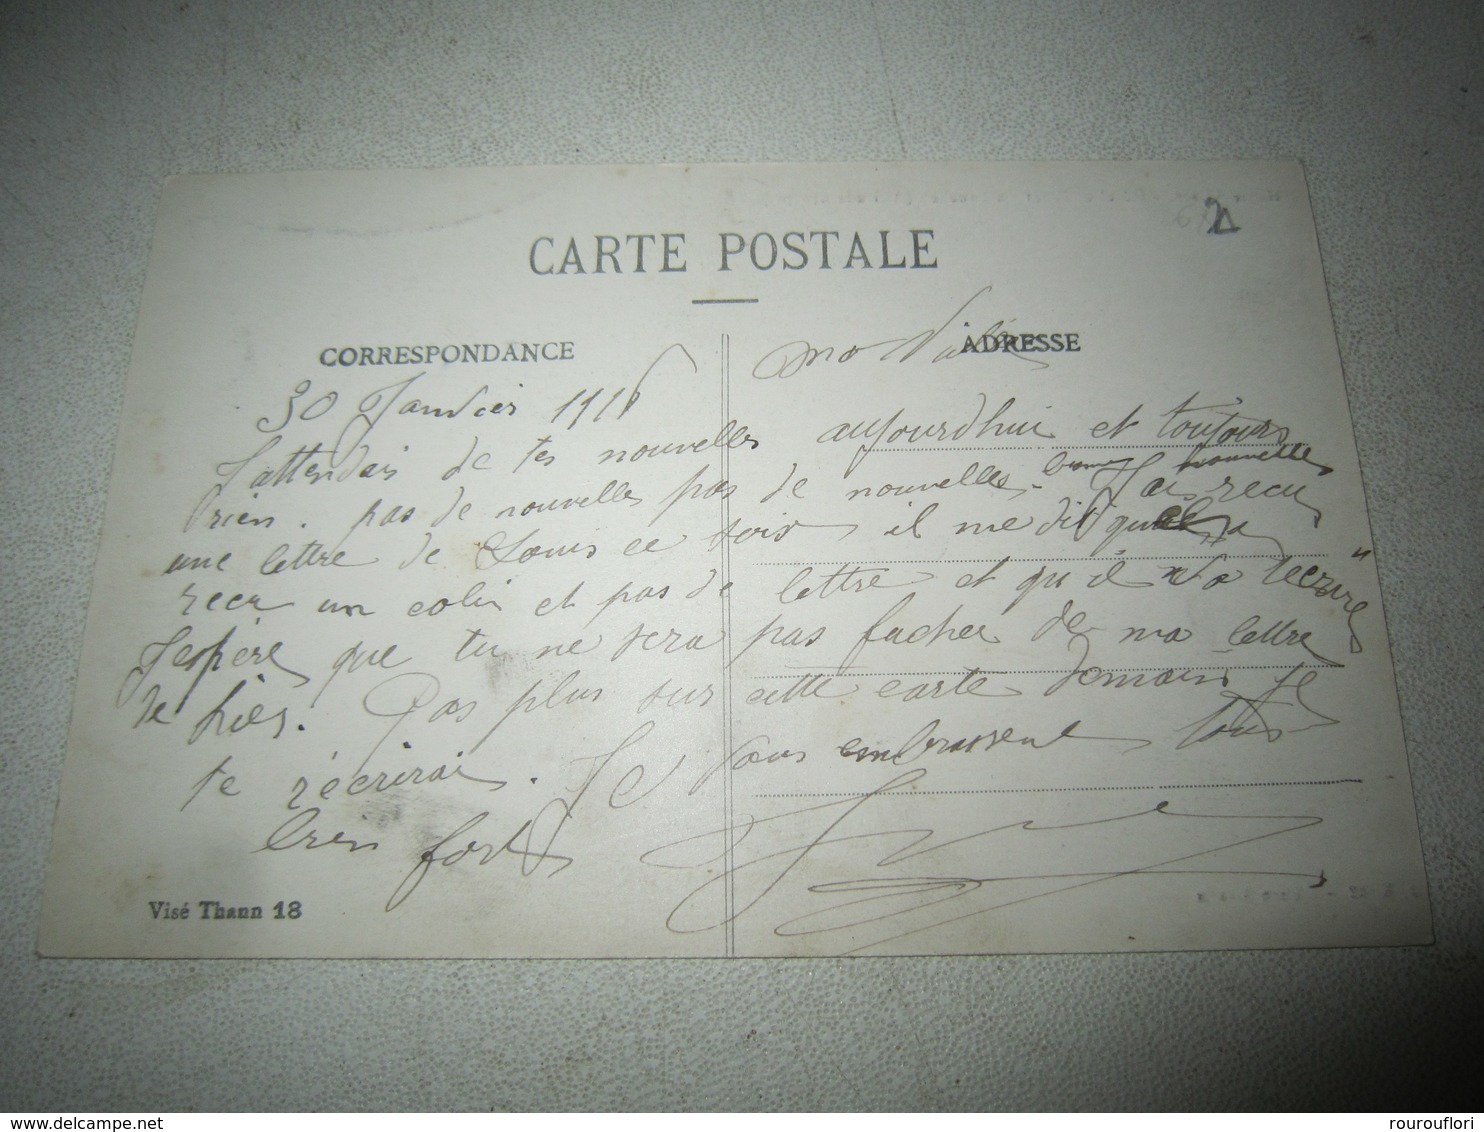 CARTE POSTALE
CORRESPONDANCE
ADRESSE
30 Janvier 191
J'attendais de tes nouvelles aujourdhui et toujours
rien. pas de nouvelles pas de nouvelles bonnes nouvelles J'ai recu
une lettre de Louis ce soir il me dit qu'
recu un colis et pas de lettre et qu'il t'écrire
J'espère que tu ne sera pas facher de ma lettre
de hier. Pas plus sur cette carte demain Je
te récrirai. Je vous embrassent tous
bien fort
Visé Thann 18
delcampe.net
rourouflori